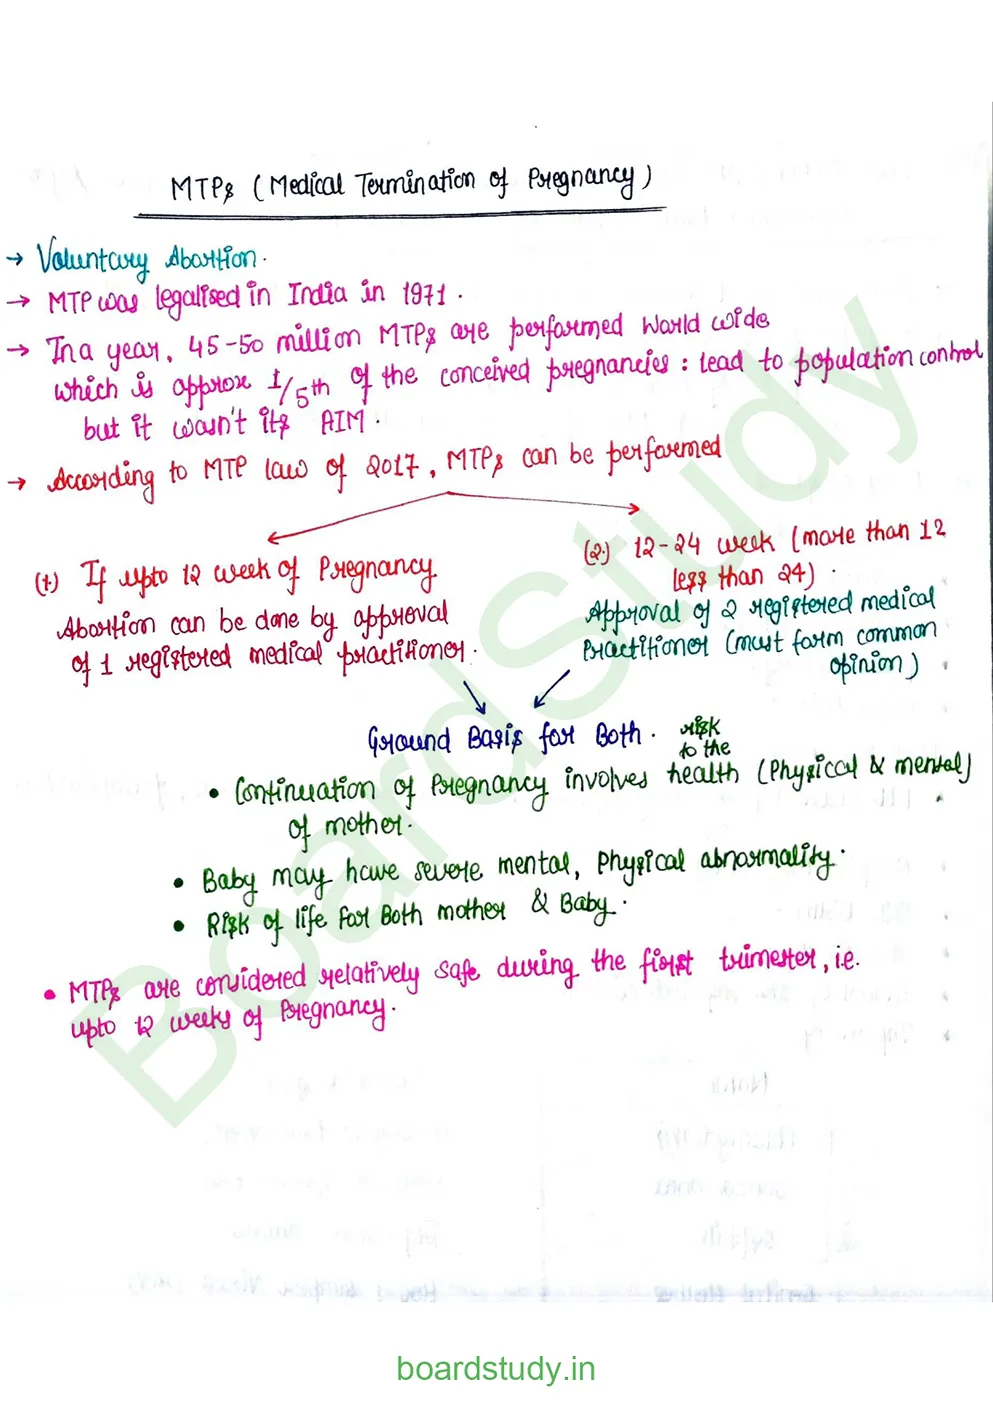 MTPs (Medical Termination of Pregnancy)
→ Voluntary Abortion.
→ MTP was legalised in India in 1971.
→ In a year, 45-50 million MTPs are performed world wide
which is approx 1/5th of the conceived pregnancies : lead to population control
but it wasn't its AIM.
→ According to MTP law of 2017, MTPs can be performed
(1.) If upto 12 week of Pregnancy
Abortion can be done by approval
of 1 registered medical practitioner.
(2.) 12-24 week (more than 12
less than 24).
Approval of 2 registered medical
Practitioner (must form common
opinion)
Ground Basis for Both.
• Continuation of Pregnancy involves risk to the health (Physical & mental)
of mother.
• Baby may have severe mental, Physical abnormality.
• Risk of life for Both mother & Baby.
• MTPs are considered relatively safe during the first trimester, i.e.
upto 12 weeks of Pregnancy.
BoardStudy
boardstudy.in